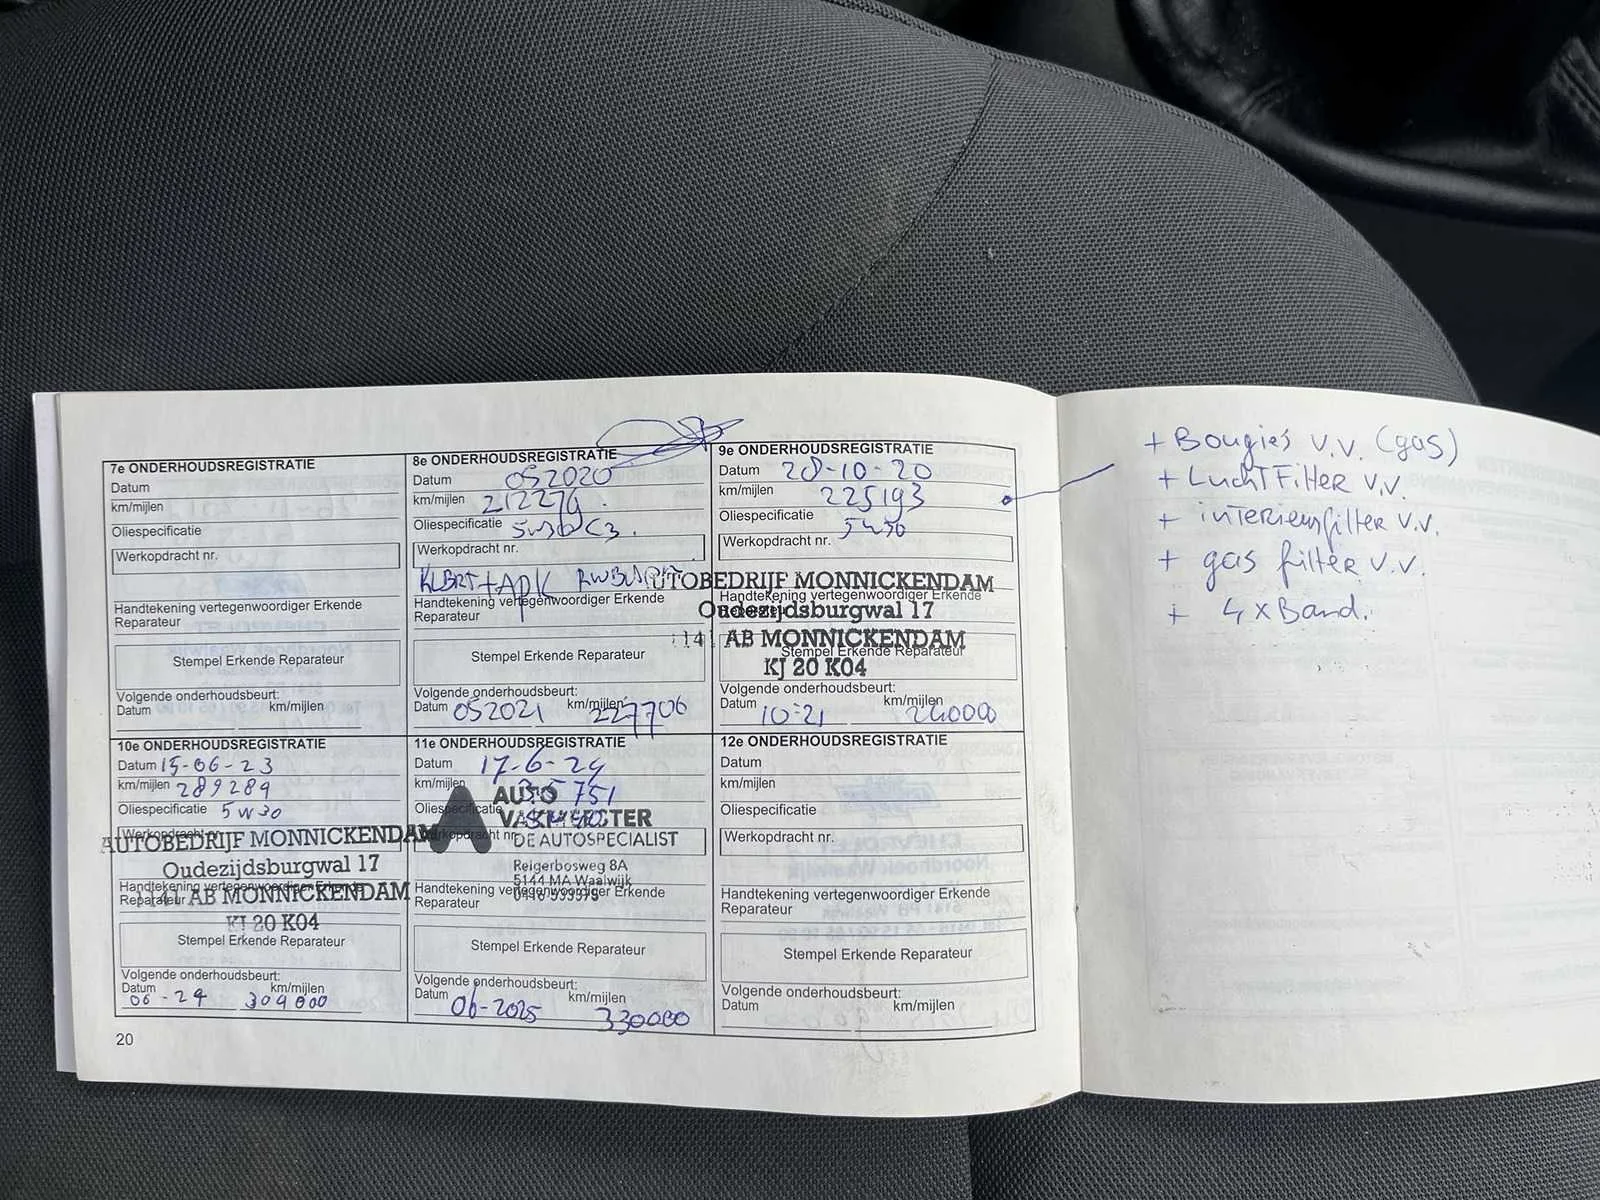 7e ONDERHOUDSREGISTRATIE
Datum
km/mijlen
Oliespecificatie
Werkopdracht nr.
Handtekening vertegenwoordiger Erkende
Reparateur
Stempel Erkende Reparateur
Volgende onderhoudsbeurt:
Datum km/mijlen
8e ONDERHOUDSREGISTRATIE
Datum 052020
km/mijlen 212279
Oliespecificatie 5w30 C3.
Werkopdracht nr.
KLBRT + APK
Handtekening vertegenwoordiger Erkende
Reparateur
Stempel Erkende Reparateur
Volgende onderhoudsbeurt:
Datum 052021 km/mijlen 227706
9e ONDERHOUDSREGISTRATIE
Datum 28-10-20
km/mijlen 225193
Oliespecificatie 5w30
Werkopdracht nr.
AUTOBEDRIJF MONNICKENDAM
Handtekening vertegenwoordiger Erkende
Oudezijdsburgwal 17
1141 AB MONNICKENDAM
Stempel Erkende Reparateur
KJ 20 K04
Volgende onderhoudsbeurt:
Datum km/mijlen
10-21
10e ONDERHOUDSREGISTRATIE
Datum 15-06-23
km/mijlen 289289
Oliespecificatie 5W30
Werkopdracht nr.
AUTOBEDRIJF MONNICKENDAM
Oudezijdsburgwal 17
Handtekening vertegenwoordiger Erkende
Reparateur 1141 AB MONNICKENDAM
KJ 20 K04
Stempel Erkende Reparateur
Volgende onderhoudsbeurt:
Datum km/mijlen
06-24 304000
11e ONDERHOUDSREGISTRATIE
Datum 17-6-24
km/mijlen
Oliespecificatie
AUTO
VAKMEESTER
Werkopdracht nr.
DE AUTOSPECIALIST
Reigerbosweg 8A
5144 MA Waalwijk
Handtekening vertegenwoordiger Erkende
Reparateur
Stempel Erkende Reparateur
Volgende onderhoudsbeurt:
Datum 06-2025 km/mijlen 330000
12e ONDERHOUDSREGISTRATIE
Datum
km/mijlen
Oliespecificatie
Werkopdracht nr.
Handtekening vertegenwoordiger Erkende
Reparateur
Stempel Erkende Reparateur
Volgende onderhoudsbeurt:
Datum km/mijlen
20
+ Bougies v.v. (gas)
+ LuchtFilter v.v.
+ interieurfilter v.v.
+ gas filter v.v.
+ 4 x Band.